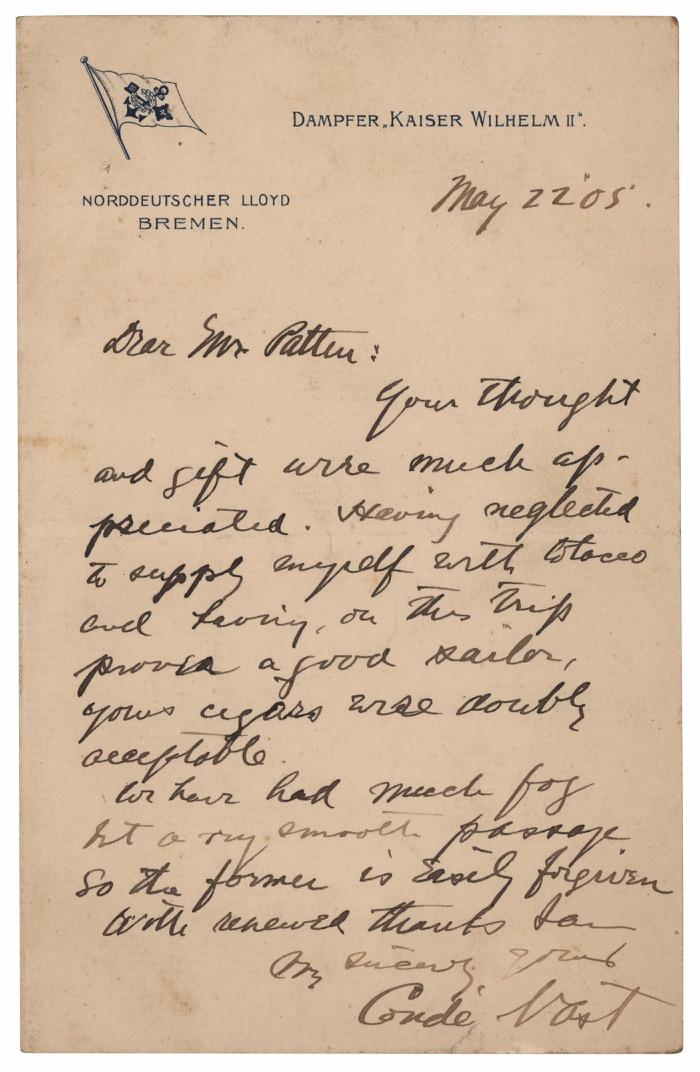 DAMPFER „KAISER WILHELM II“.
NORDDEUTSCHER LLOYD
BREMEN.
May 22 '05.
Dear Mr Patten:
Your thought
and gift were much ap-
preciated. Having neglected
to supply myself with tobacco
and having, on this trip
proven a good sailor,
your cigars were doubly
acceptable.
We have had much fog
but a very smooth passage
so the former is easily forgiven
With renewed thanks I am
Very sincerely yours
Condé Nast